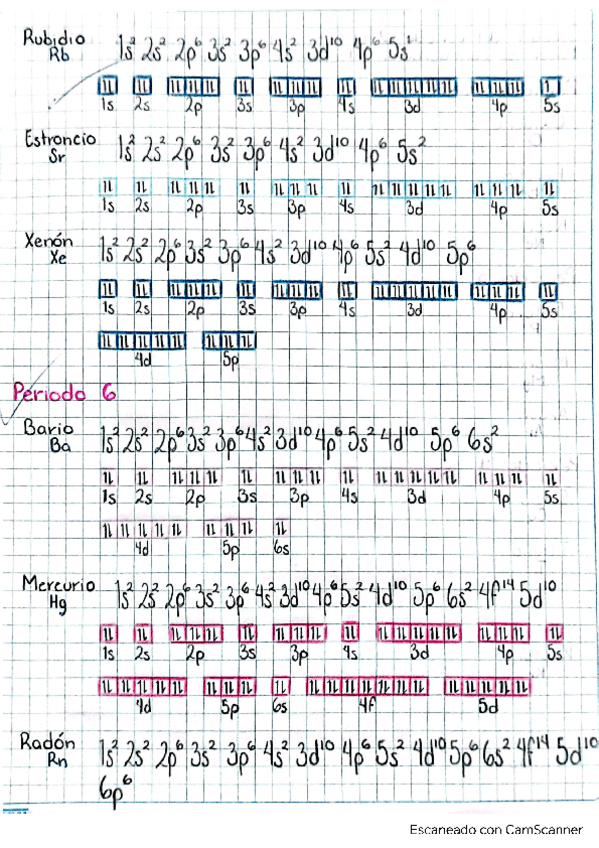 Rubidio 1s² 2s² 2p⁶ 3s² 3p⁶ 4s² 3d¹⁰ 4p⁶ 5s¹
Rb
1s 2s 2p 3s 3p 4s 3d 4p 5s
Estroncio 1s² 2s² 2p⁶ 3s² 3p⁶ 4s² 3d¹⁰ 4p⁶ 5s²
Sr
1s 2s 2p 3s 3p 4s 3d 4p 5s
Xenón 1s² 2s² 2p⁶ 3s² 3p⁶ 4s² 3d¹⁰ 4p⁶ 5s² 4d¹⁰ 5p⁶
Xe
1s 2s 2p 3s 3p 4s 3d 4p 5s
4d 5p
Periodo 6
Bario 1s² 2s² 2p⁶ 3s² 3p⁶ 4s² 3d¹⁰ 4p⁶ 5s² 4d¹⁰ 5p⁶ 6s²
Ba
1s 2s 2p 3s 3p 4s 3d 4p 5s
4d 5p 6s
Mercurio 1s² 2s² 2p⁶ 3s² 3p⁶ 4s² 3d¹⁰ 4p⁶ 5s² 4d¹⁰ 5p⁶ 6s² 4f¹⁴ 5d¹⁰
Hg
1s 2s 2p 3s 3p 4s 3d 4p 5s
4d 5p 6s 4f 5d
Radón 1s² 2s² 2p⁶ 3s² 3p⁶ 4s² 3d¹⁰ 4p⁶ 5s² 4d¹⁰ 5p⁶ 6s² 4f¹⁴ 5d¹⁰
Rn
6p⁶
Escaneado con CamScanner